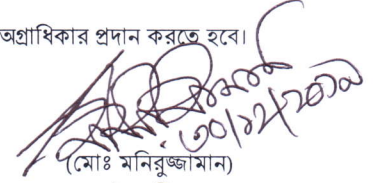 অগ্রাধিকার প্রদান করতে হবে।
৩০/১২/২০১৯
(মোঃ মনিরুজ্জামান)